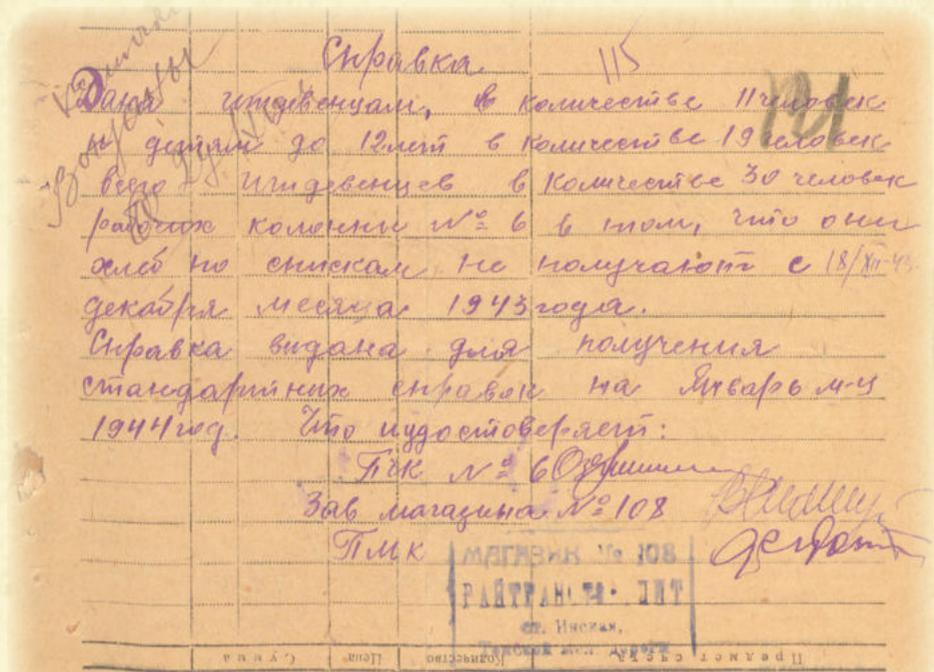 Справка 115
Дана иждевенцам, в количестве 11 человек 121
и детям до 12 лет в количестве 19 человек
всего иждевенцев в количестве 30 человек
рабочих колонны № 6 в том, что они
хлеб по спискам не получают с 18/XII-43
декабря месяца 1943 года.
Справка выдана для получения
стандартных справок на Январь м-ц
1944 год. Что и удостоверяет:
ПЧК № 6
Зав магазина № 108
ПМК
МАГАЗИН № 108
РАЙТРАНСТОРГПИТ
ст. Инская,
Томской жел. дороги
Предмет счета Количество Цена Сумма